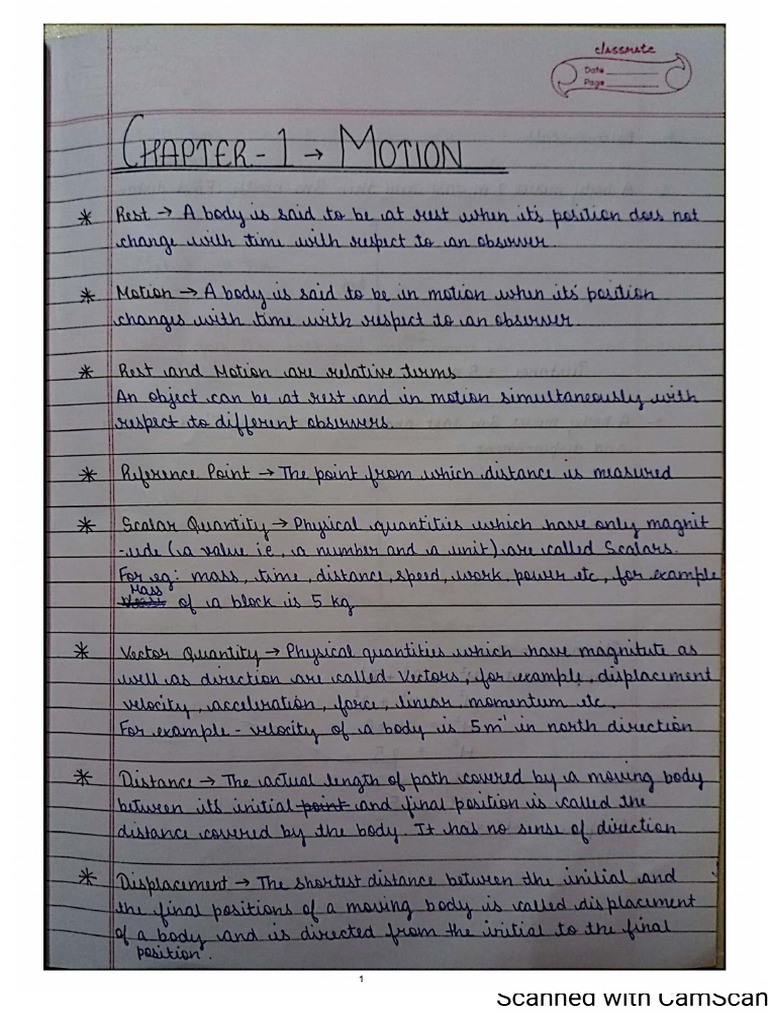 classmate
Date
Page
CHAPTER-1 → MOTION
* Rest → A body is said to be at rest when its position does not
change with time with respect to an observer.
* Motion → A body is said to be in motion when its' position
changes with time with respect to an observer.
* Rest and Motion are relative terms
An object can be at rest and in motion simultaneously with
respect to different observers.
* Reference Point → The point from which distance is measured
* Scalar Quantity → Physical quantities which have only magnit
-ude (a value ie, a number and a unit) are called Scalars.
For eg: mass, time, distance, speed, work, power etc, for example
Mass
of a block is 5 kg
* Vector Quantity → Physical quantities which have magnitute as
well as direction are called Vectors, for example, displacement
velocity, acceleration, force, linear momentum etc.
For example - velocity of a body is 5m⁻¹ in north direction
* Distance → The actual length of path covered by a moving body
between its initial point and final position is called the
distance covered by the body. It has no sense of direction
* Displacement → The shortest distance between the initial and
the final positions of a moving body is called displacement
of a body and is directed from the initial to the final
position.
1
Scanned with CamScan